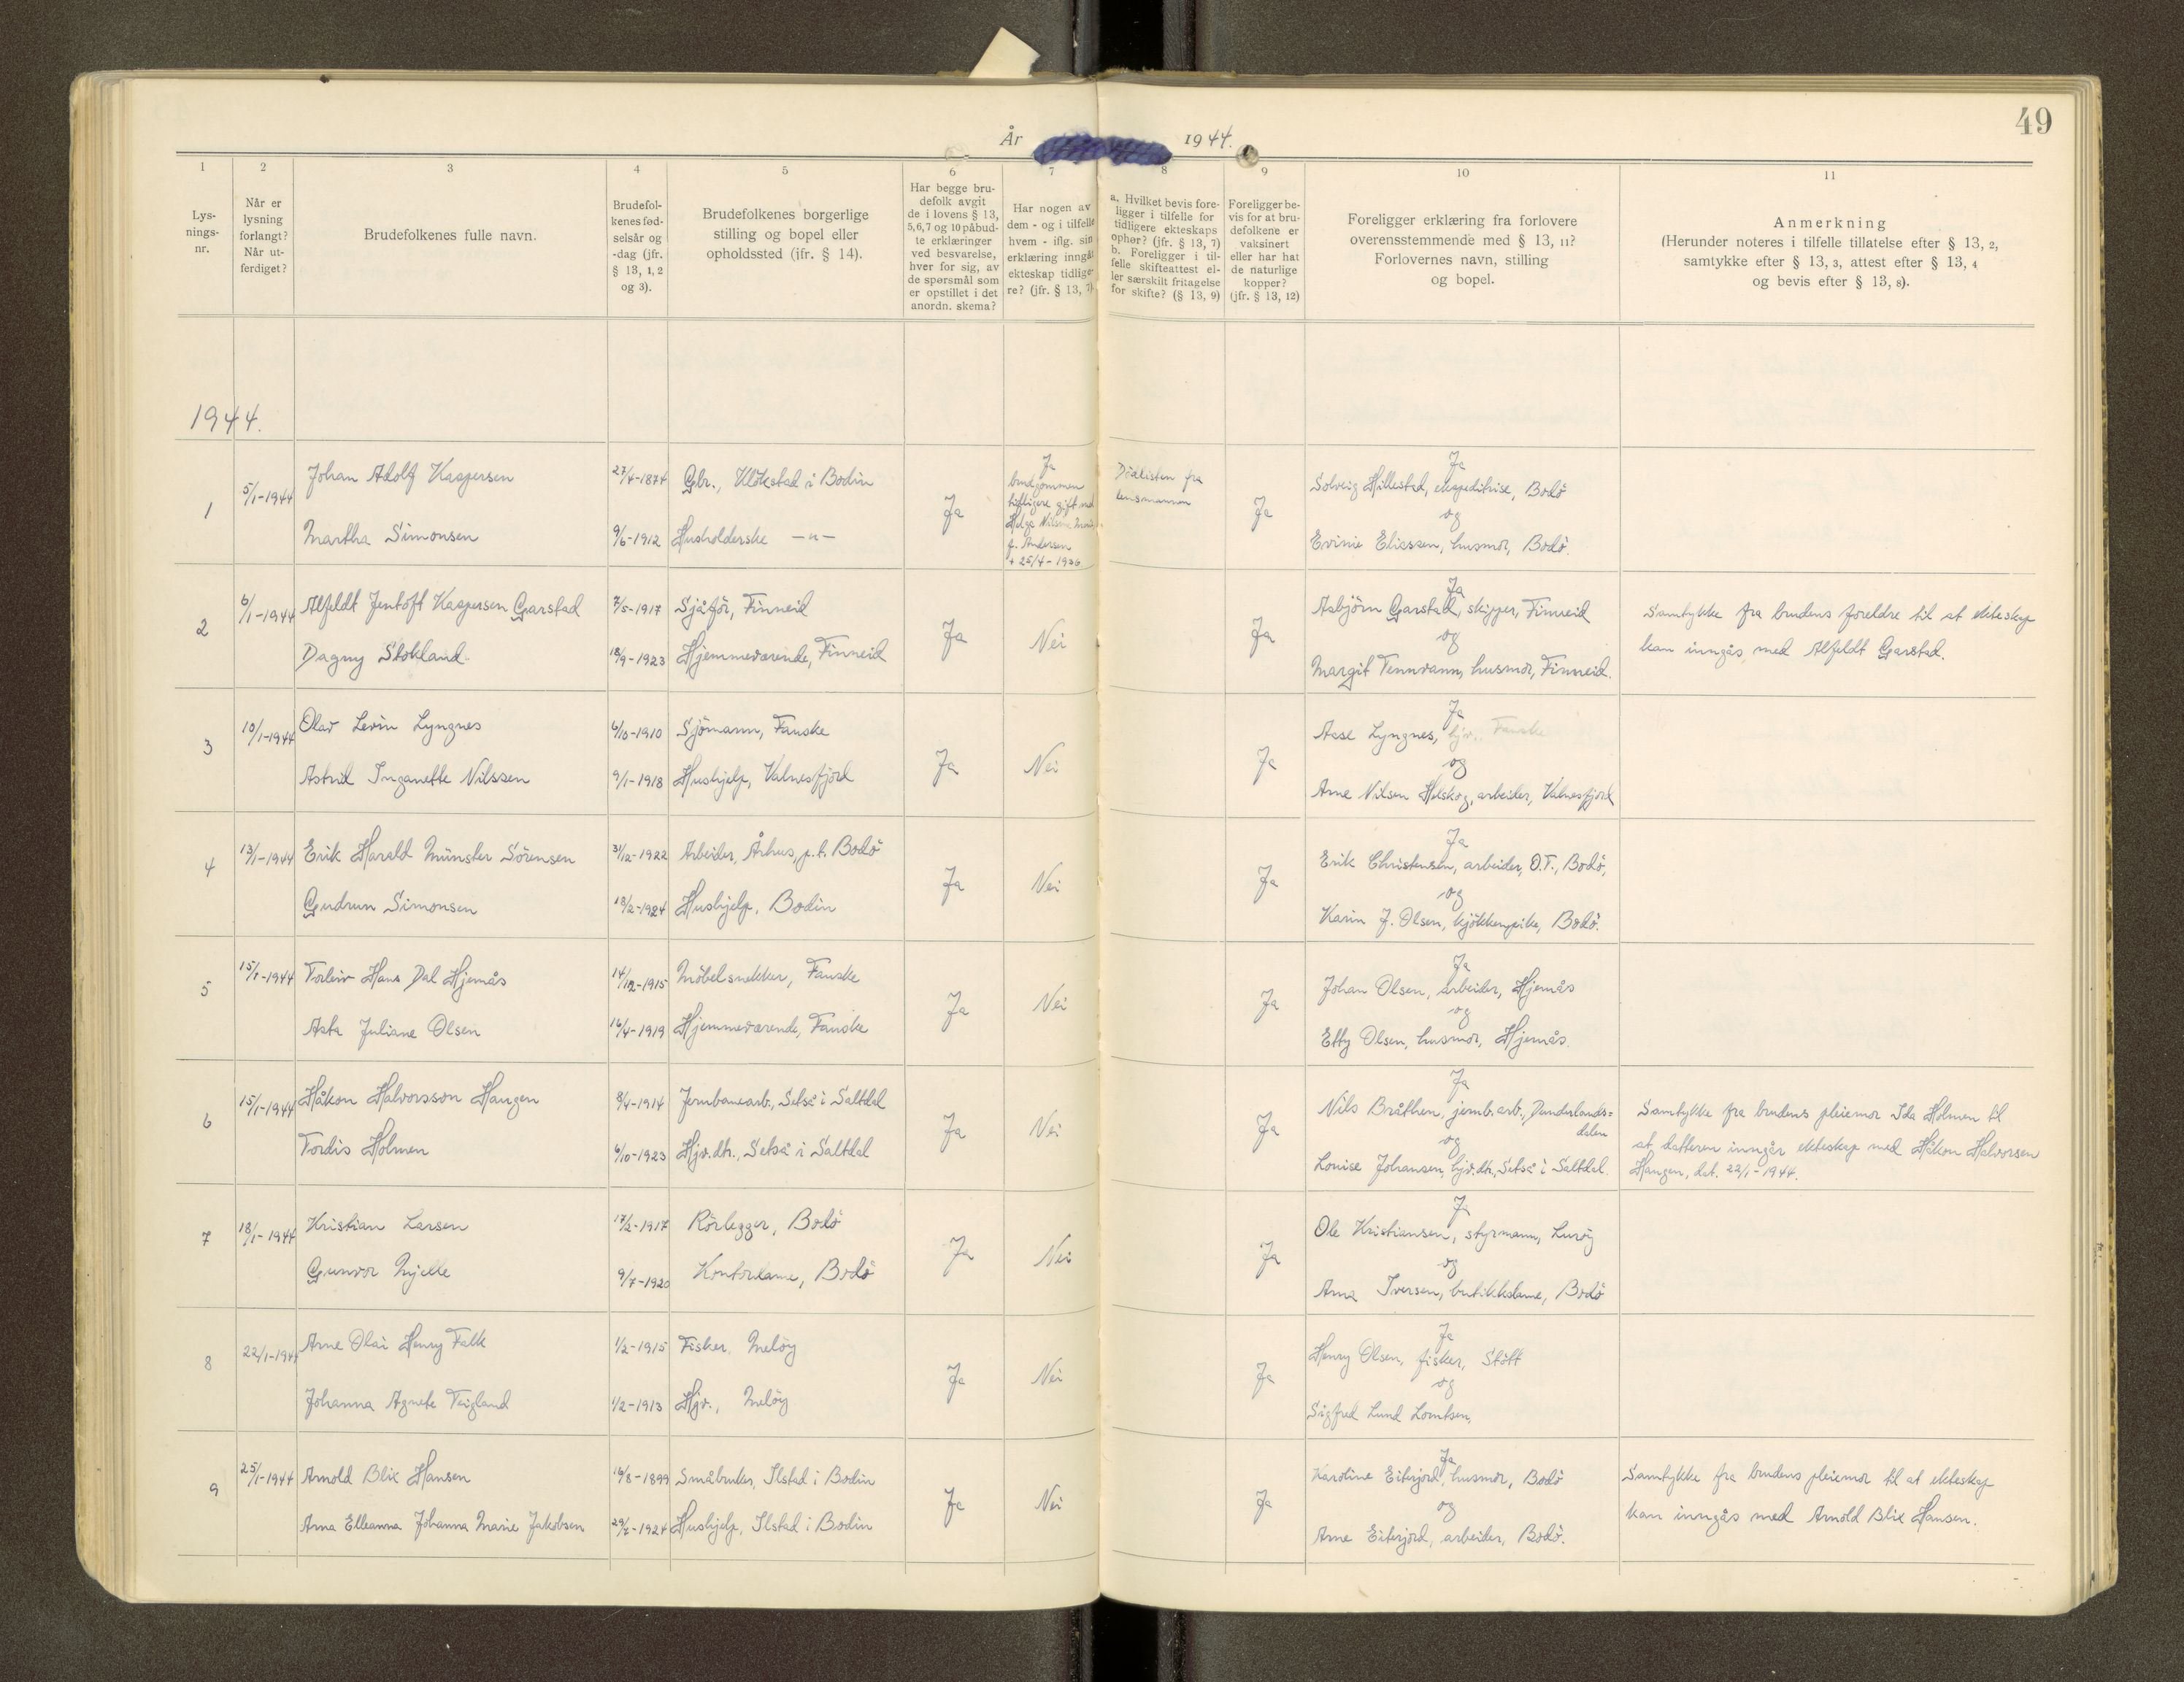 49
År 1944.
1 2 3 4 5 6 7 8 9 10 11
Lys-
nings-
nr.
Når er
lysning
forlangt?
Når ut-
ferdiget?
Brudefolkenes fulle navn.
Brudefol-
kenes fød-
selsår og
-dag (jfr.
§ 13, 1, 2
og 3).
Brudefolkenes borgerlige
stilling og bopel eller
opholdssted (jfr. § 14).
Har begge bru-
defolk avgit
de i lovens § 13,
5,6,7 og 10 påbud-
te erklæringer
ved besvarelse,
hver for sig, av
de spørsmål som
er opstillet i det
anordn. skema?
Har nogen av
dem - og i tilfelle
hvem - iflg. sin
erklæring inngåt
ekteskap tidlige-
re? (jfr. § 13, 7)
a. Hvilket bevis fore-
ligger i tilfelle for
tidligere ekteskaps
ophør? (jfr. § 13, 7)
b. Foreligger i til-
felle skifteattest el-
ler særskilt fritagelse
for skifte? (§ 13, 9)
Foreligger be-
vis for at bru-
defolkene er
vaksinert
eller har hat
de naturlige
kopper?
(jfr. § 13, 12)
Foreligger erklæring fra forlovere
overensstemmende med § 13, 11?
Forlovernes navn, stilling
og bopel.
Anmerkning
(Herunder noteres i tilfelle tillatelse efter § 13, 2,
samtykke efter § 13, 3, attest efter § 13, 4
og bevis efter § 13, 8).
1944.
1
5/1-1944
Johan Adolf Kaspersen
Martha Simonsen
27/4-1874
9/6-1912
Gbr., Klökstad i Bodin
Husholderske —"—
Ja
Ja
brudgommen
tidligere gift med
Helga
f. Andersen
+ 25/4-1936
Dödslisten fra
lensmannen
Ja
Ja
Solveig Hillestad, ekspeditrise, Bodö
og
Evinie Eliassen, husmor, Bodö.
2
6/1-1944
Alfeldt Jentoft Kaspersen Garstad
Dagny Stokland
7/5-1917
18/9-1923
Sjåför, Finneid
Hjemmeværende, Finneid
Ja
Nei
Ja
Ja
Asbjörn Garstad, skipper, Finneid
og
Margit Tennvann, husmor, Finneid.
Samtykke fra brudens foreldre til at ekteskap
kan inngås med Alfeldt Garstad.
3
10/1-1944
Olav Levin Lyngnes
Astrid Inganette Nilssen
6/10-1910
9/1-1918
Sjömann, Fauske
Hushjelp, Valnesfjord
Ja
Nei
Ja
Ja
Aase Lyngnes, hjv. Fauske
og
Arne Nilsen Holskog, arbeider, Valnesfjord
4
13/1-1944
Erik Harald Münster Sörensen
Gudrun Simonsen
31/12-1922
18/2-1924
Arbeider, Århus, p.t. Bodö
Hushjelp, Bodin
Ja
Nei
Ja
Ja
Erik Christensen, arbeider, O.T., Bodö,
og
Karin J. Olsen, kjökkenpike, Bodö.
5
15/1-1944
Torleiv Hans Dal Hjemås
Asta Juliane Olsen
14/12-1915
16/4-1919
Möbelsnekker, Fauske
Hjemmeværende, Fauske
Ja
Nei
Ja
Ja
Johan Olsen, arbeider, Hjemås
og
Etty Olsen, husmor, Hjemås.
6
15/1-1944
Håkon Halvorsson Haugen
Tordis Holmen
8/4-1914
6/10-1923
Jernbanearb., Setså i Saltdal
Hjv.dtr., Setså i Saltdal
Ja
Nei
Ja
Ja
Nils Bråthen, jernb.arb., Dunderlands=
dalen
og
Louise Johansen, hjv.dtr., Setså i Saltdal.
Samtykke fra brudens pleiemor Ida Holmen til
at datteren inngår ekteskap med Håkon Halvorsen
Haugen, dat. 22/1-1944.
7
18/1-1944
Kristian Larsen
Gunvor Mjelle
17/2-1917
9/7-1920
Rörlegger, Bodö
Kontordame, Bodö
Ja
Nei
Ja
Ja
Ole Kristiansen, styrmann, Luröy
og
Arna Iversen, butikkdame, Bodö
8
22/1-1944
Arne Olai Henry Falk
Johanna Agnete Teigland
1/2-1915
1/2-1913
Fisker, Melöy
Hjv., Melöy
Ja
Nei
Ja
Ja
Henry Olsen, fisker, Stött
og
Sigfred Lund Lorntsen,
9
25/1-1944
Arnold Blix Hansen
Arna Elleanna Johanna Marie Jakobsen
16/8-1899
29/7-1924
Småbruker, Ilstad i Bodin
Hushjelp, Ilstad i Bodin
Ja
Nei
Ja
Ja
Karoline Eiterjord, husmor, Bodö
og
Arne Eiterjord, arbeider, Bodö.
Samtykke fra brudens pleiemor til at ekteskap
kan inngås med Arnold Blix Hansen.